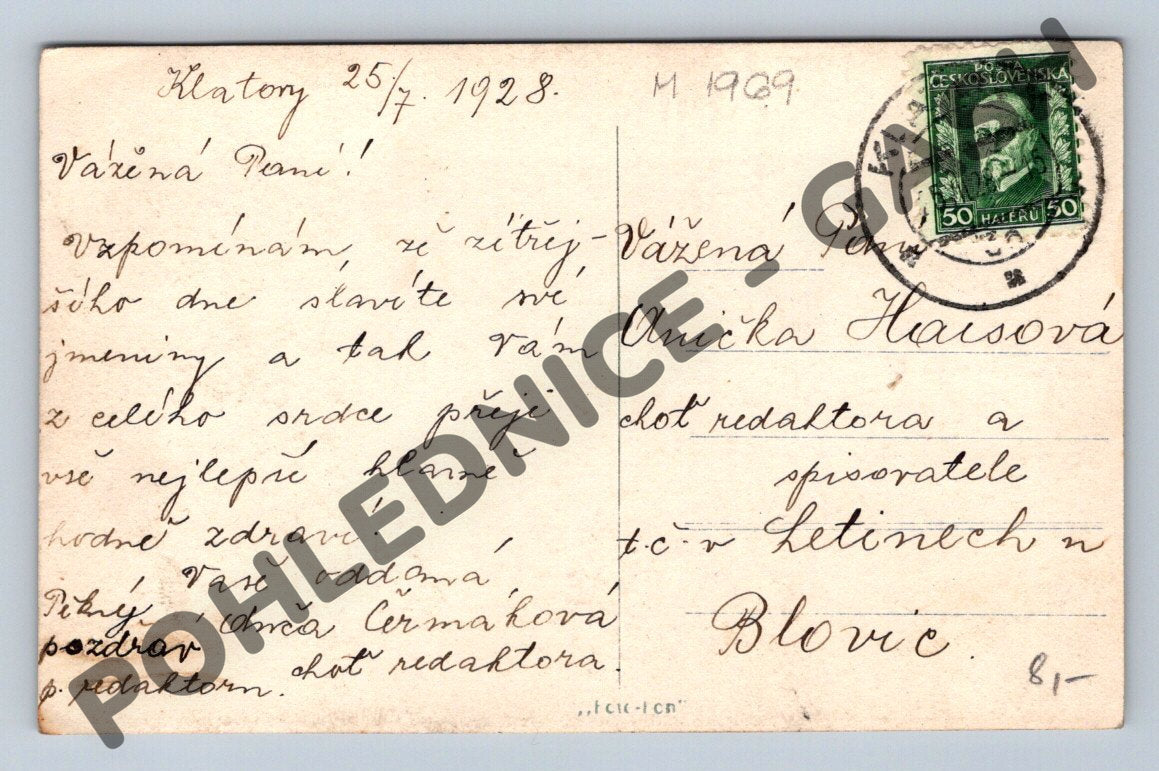 Klatovy 25/7. 1928.
M 1969
Vážěná Paní!
Vzpomínám, zě zítřej-
šího dne slavíte své
jmeniny a tak Vám
z celého srdce přeji
vsě nejlepší hlavně
hodně zdraví!
Vasě oddaná
Anča Čermáková
choť redaktora.
Pěkný
pozdrav
p. redaktoru.
POŠTA
ČESKOSLOVENSKÁ
50 HALÉŘŮ 50
Vážená Paní
Anička Haisová
choť redaktora a
spisovatele
t.č. v Letinech u
Blovic.
8,-
POHLEDNICE - GALN